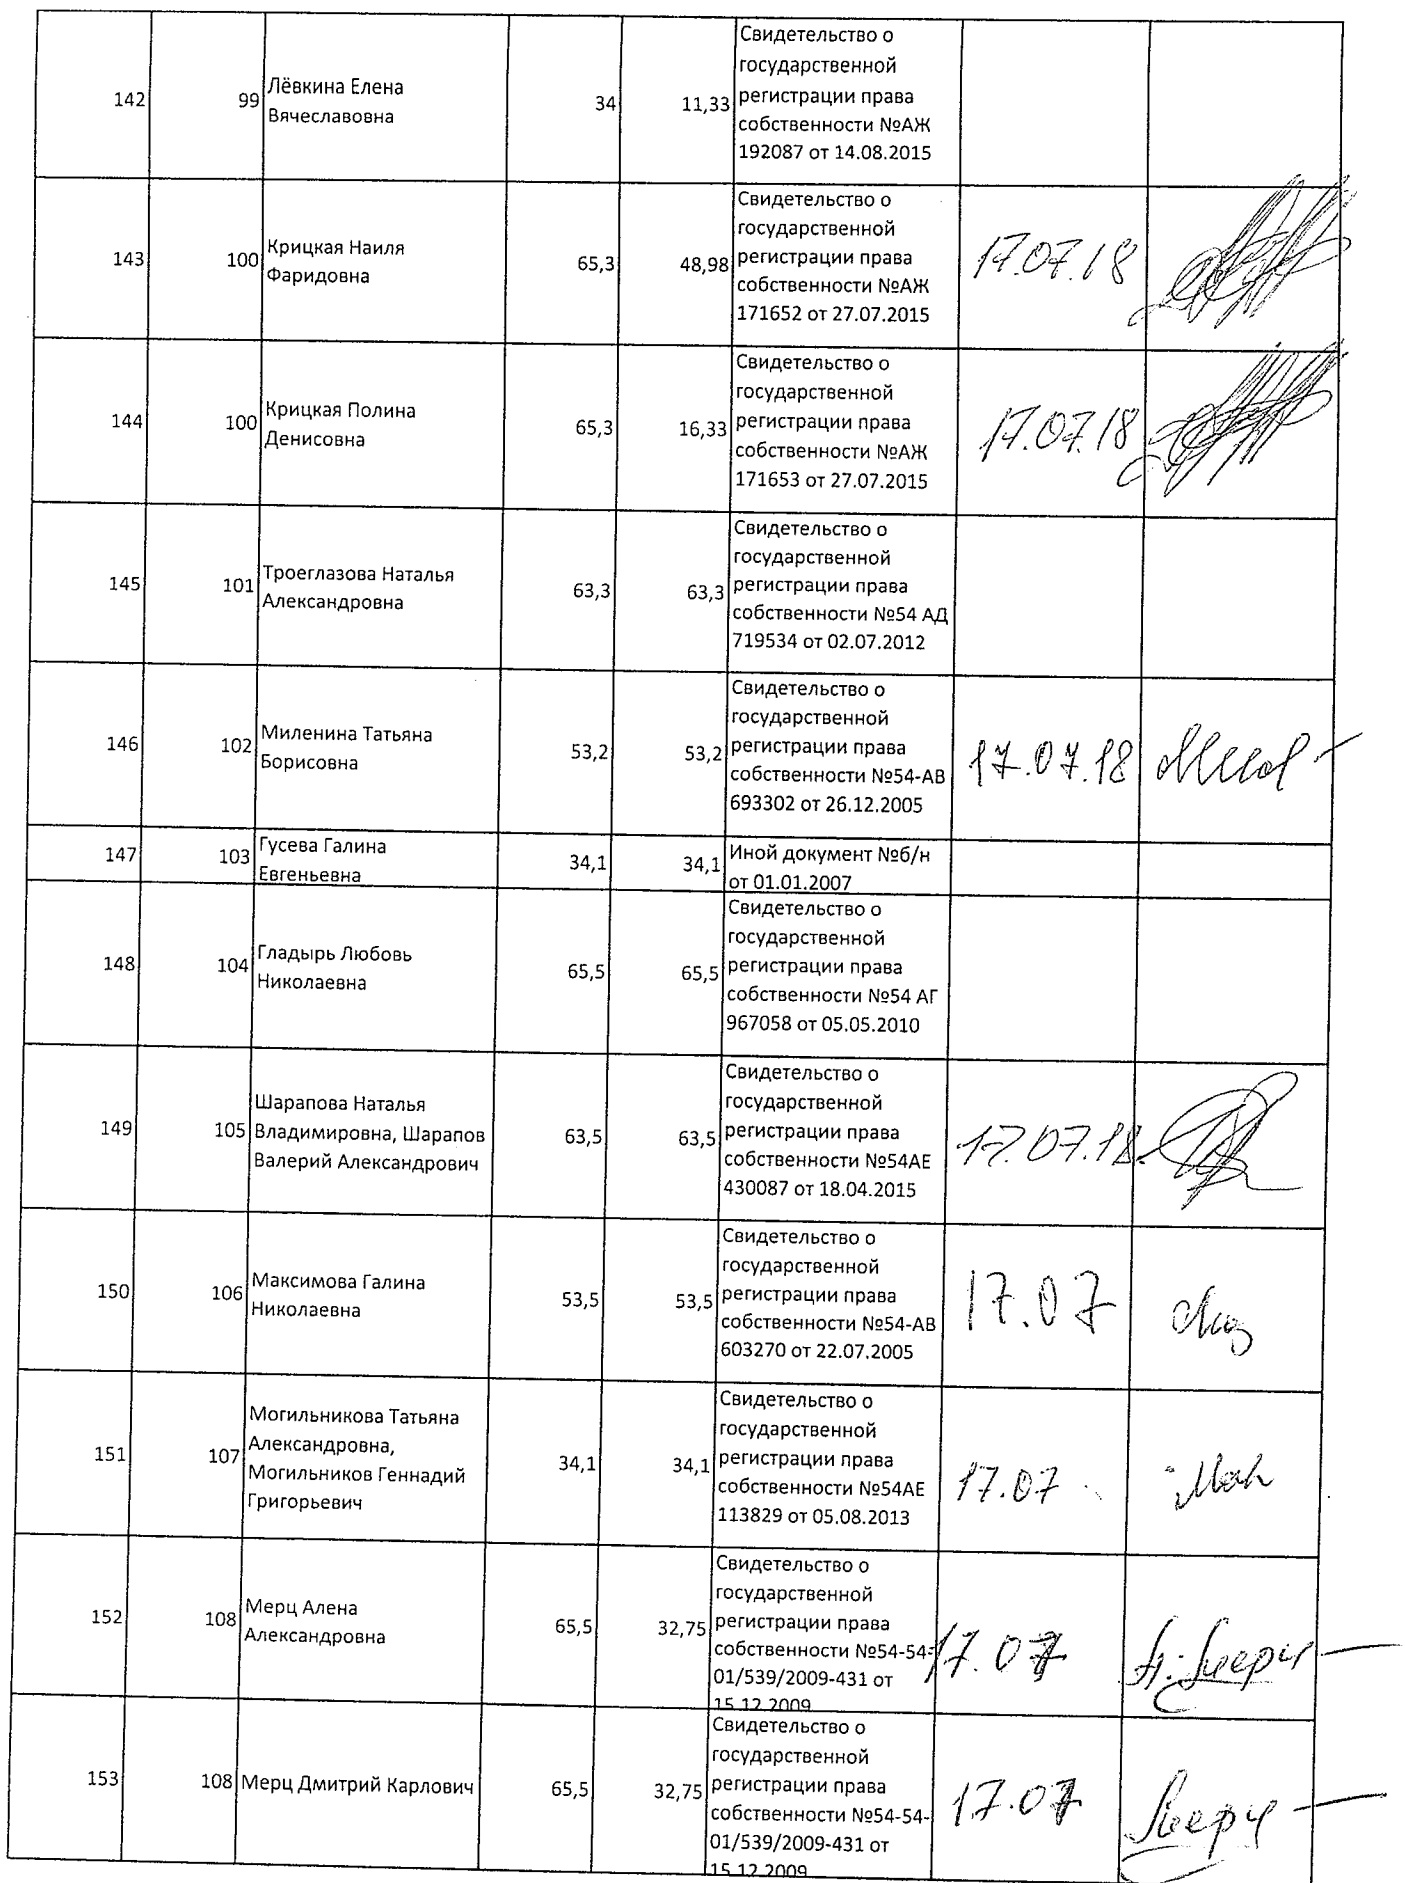 142
99
Лёвкина Елена
Вячеславовна
34
11,33
Свидетельство о
государственной
регистрации права
собственности №АЖ
192087 от 14.08.2015
143
100
Крицкая Наиля
Фаридовна
65,3
48,98
Свидетельство о
государственной
регистрации права
собственности №АЖ
171652 от 27.07.2015
17.07.18
144
100
Крицкая Полина
Денисовна
65,3
16,33
Свидетельство о
государственной
регистрации права
собственности №АЖ
171653 от 27.07.2015
17.07.18
145
101
Троеглазова Наталья
Александровна
63,3
63,3
Свидетельство о
государственной
регистрации права
собственности №54 АД
719534 от 02.07.2012
146
102
Миленина Татьяна
Борисовна
53,2
53,2
Свидетельство о
государственной
регистрации права
собственности №54-АВ
693302 от 26.12.2005
17.07.18
147
103
Гусева Галина
Евгеньевна
34,1
34,1
Иной документ №б/н
от 01.01.2007
148
104
Гладырь Любовь
Николаевна
65,5
65,5
Свидетельство о
государственной
регистрации права
собственности №54 АГ
967058 от 05.05.2010
149
105
Шарапова Наталья
Владимировна, Шарапов
Валерий Александрович
63,5
63,5
Свидетельство о
государственной
регистрации права
собственности №54АЕ
430087 от 18.04.2015
17.07.18.
150
106
Максимова Галина
Николаевна
53,5
53,5
Свидетельство о
государственной
регистрации права
собственности №54-АВ
603270 от 22.07.2005
17.07
151
107
Могильникова Татьяна
Александровна,
Могильников Геннадий
Григорьевич
34,1
34,1
Свидетельство о
государственной
регистрации права
собственности №54АЕ
113829 от 05.08.2013
17.07
152
108
Мерц Алена
Александровна
65,5
32,75
Свидетельство о
государственной
регистрации права
собственности №54-54-
01/539/2009-431 от
15.12.2009
17.07
А. Мерц
153
108
Мерц Дмитрий Карлович
65,5
32,75
Свидетельство о
государственной
регистрации права
собственности №54-54-
01/539/2009-431 от
15.12.2009
17.07
Мерц